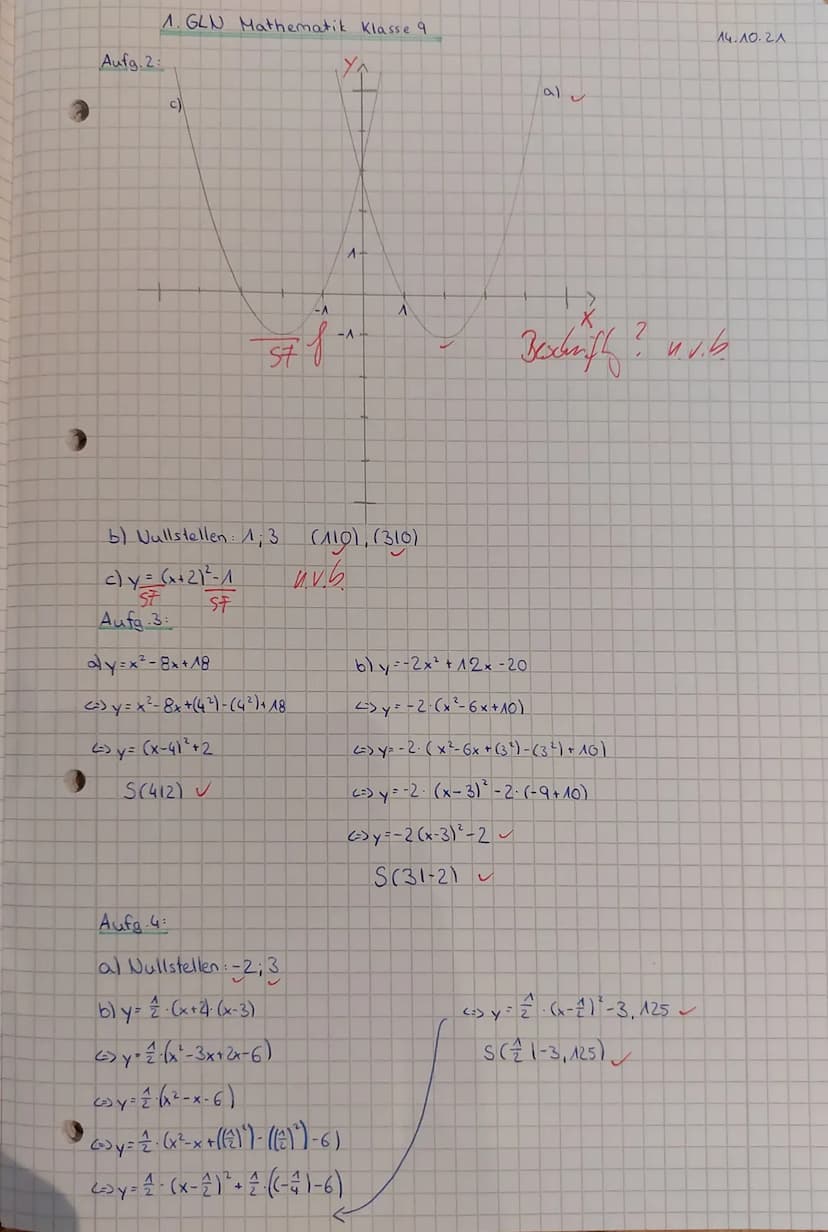 1. GLN Mathematik Klasse 9
14.10.21
Aufg. 2:
y
c)
a) ✓
1
-1
1
x
-1
SF f
Beschriftg? n.v.b.
b) Nullstellen: 1; 3 (1|0), (3|0)
c) y = (x+2)²-1 n.v.b.
SF SF
Aufg. 3:
a) y = x² - 8x + 18
<=> y = x² - 8x + (4²) - (4²) + 18
<=> y = (x-4)² + 2
S(4|2) ✓
b) y = -2x² + 12x - 20
<=> y = -2·(x² - 6x + 10)
<=> y = -2·(x² - 6x + (3²) - (3²) + 10)
<=> y = -2·(x-3)² - 2·(-9+10)
<=> y = -2(x-3)² - 2 ✓
S(3|-2) ✓
Aufg. 4:
a) Nullstellen: -2; 3
b) y = 1/2·(x+2)·(x-3)
<=> y = 1/2·(x² - 3x + 2x - 6)
<=> y = 1/2·(x² - x - 6)
<=> y = 1/2·(x² - x + ((1/2)²) - ((1/2)²) - 6)
<=> y = 1/2·(x - 1/2)² + 1/2·((-1/4) - 6)
<=> y = 1/2·(x - 1/2)² - 3,125 ✓
S(1/2|-3,125) ✓